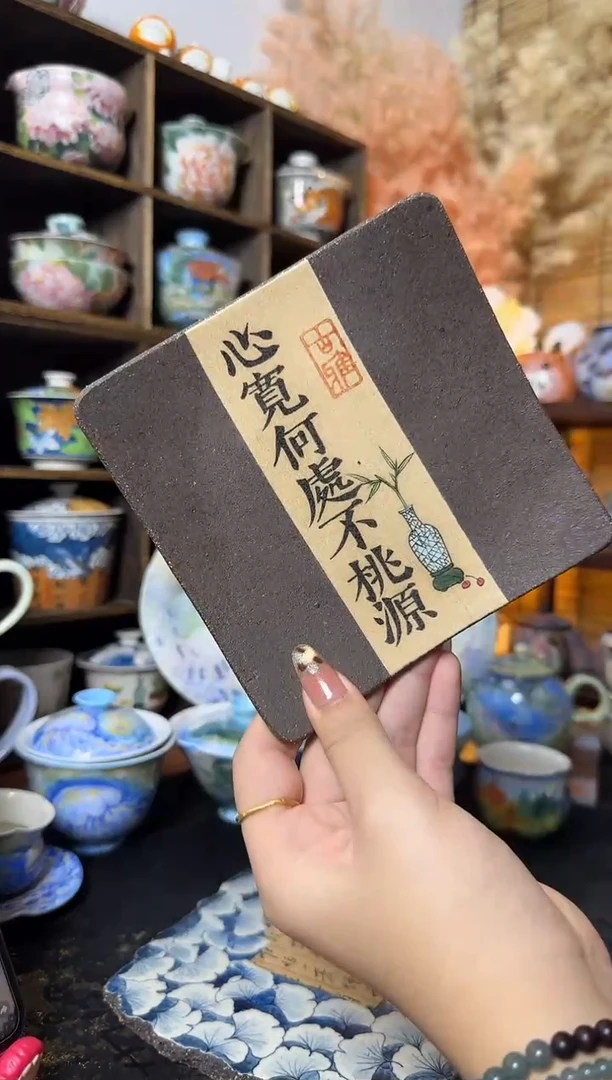 心寬何處不桃源
古雅